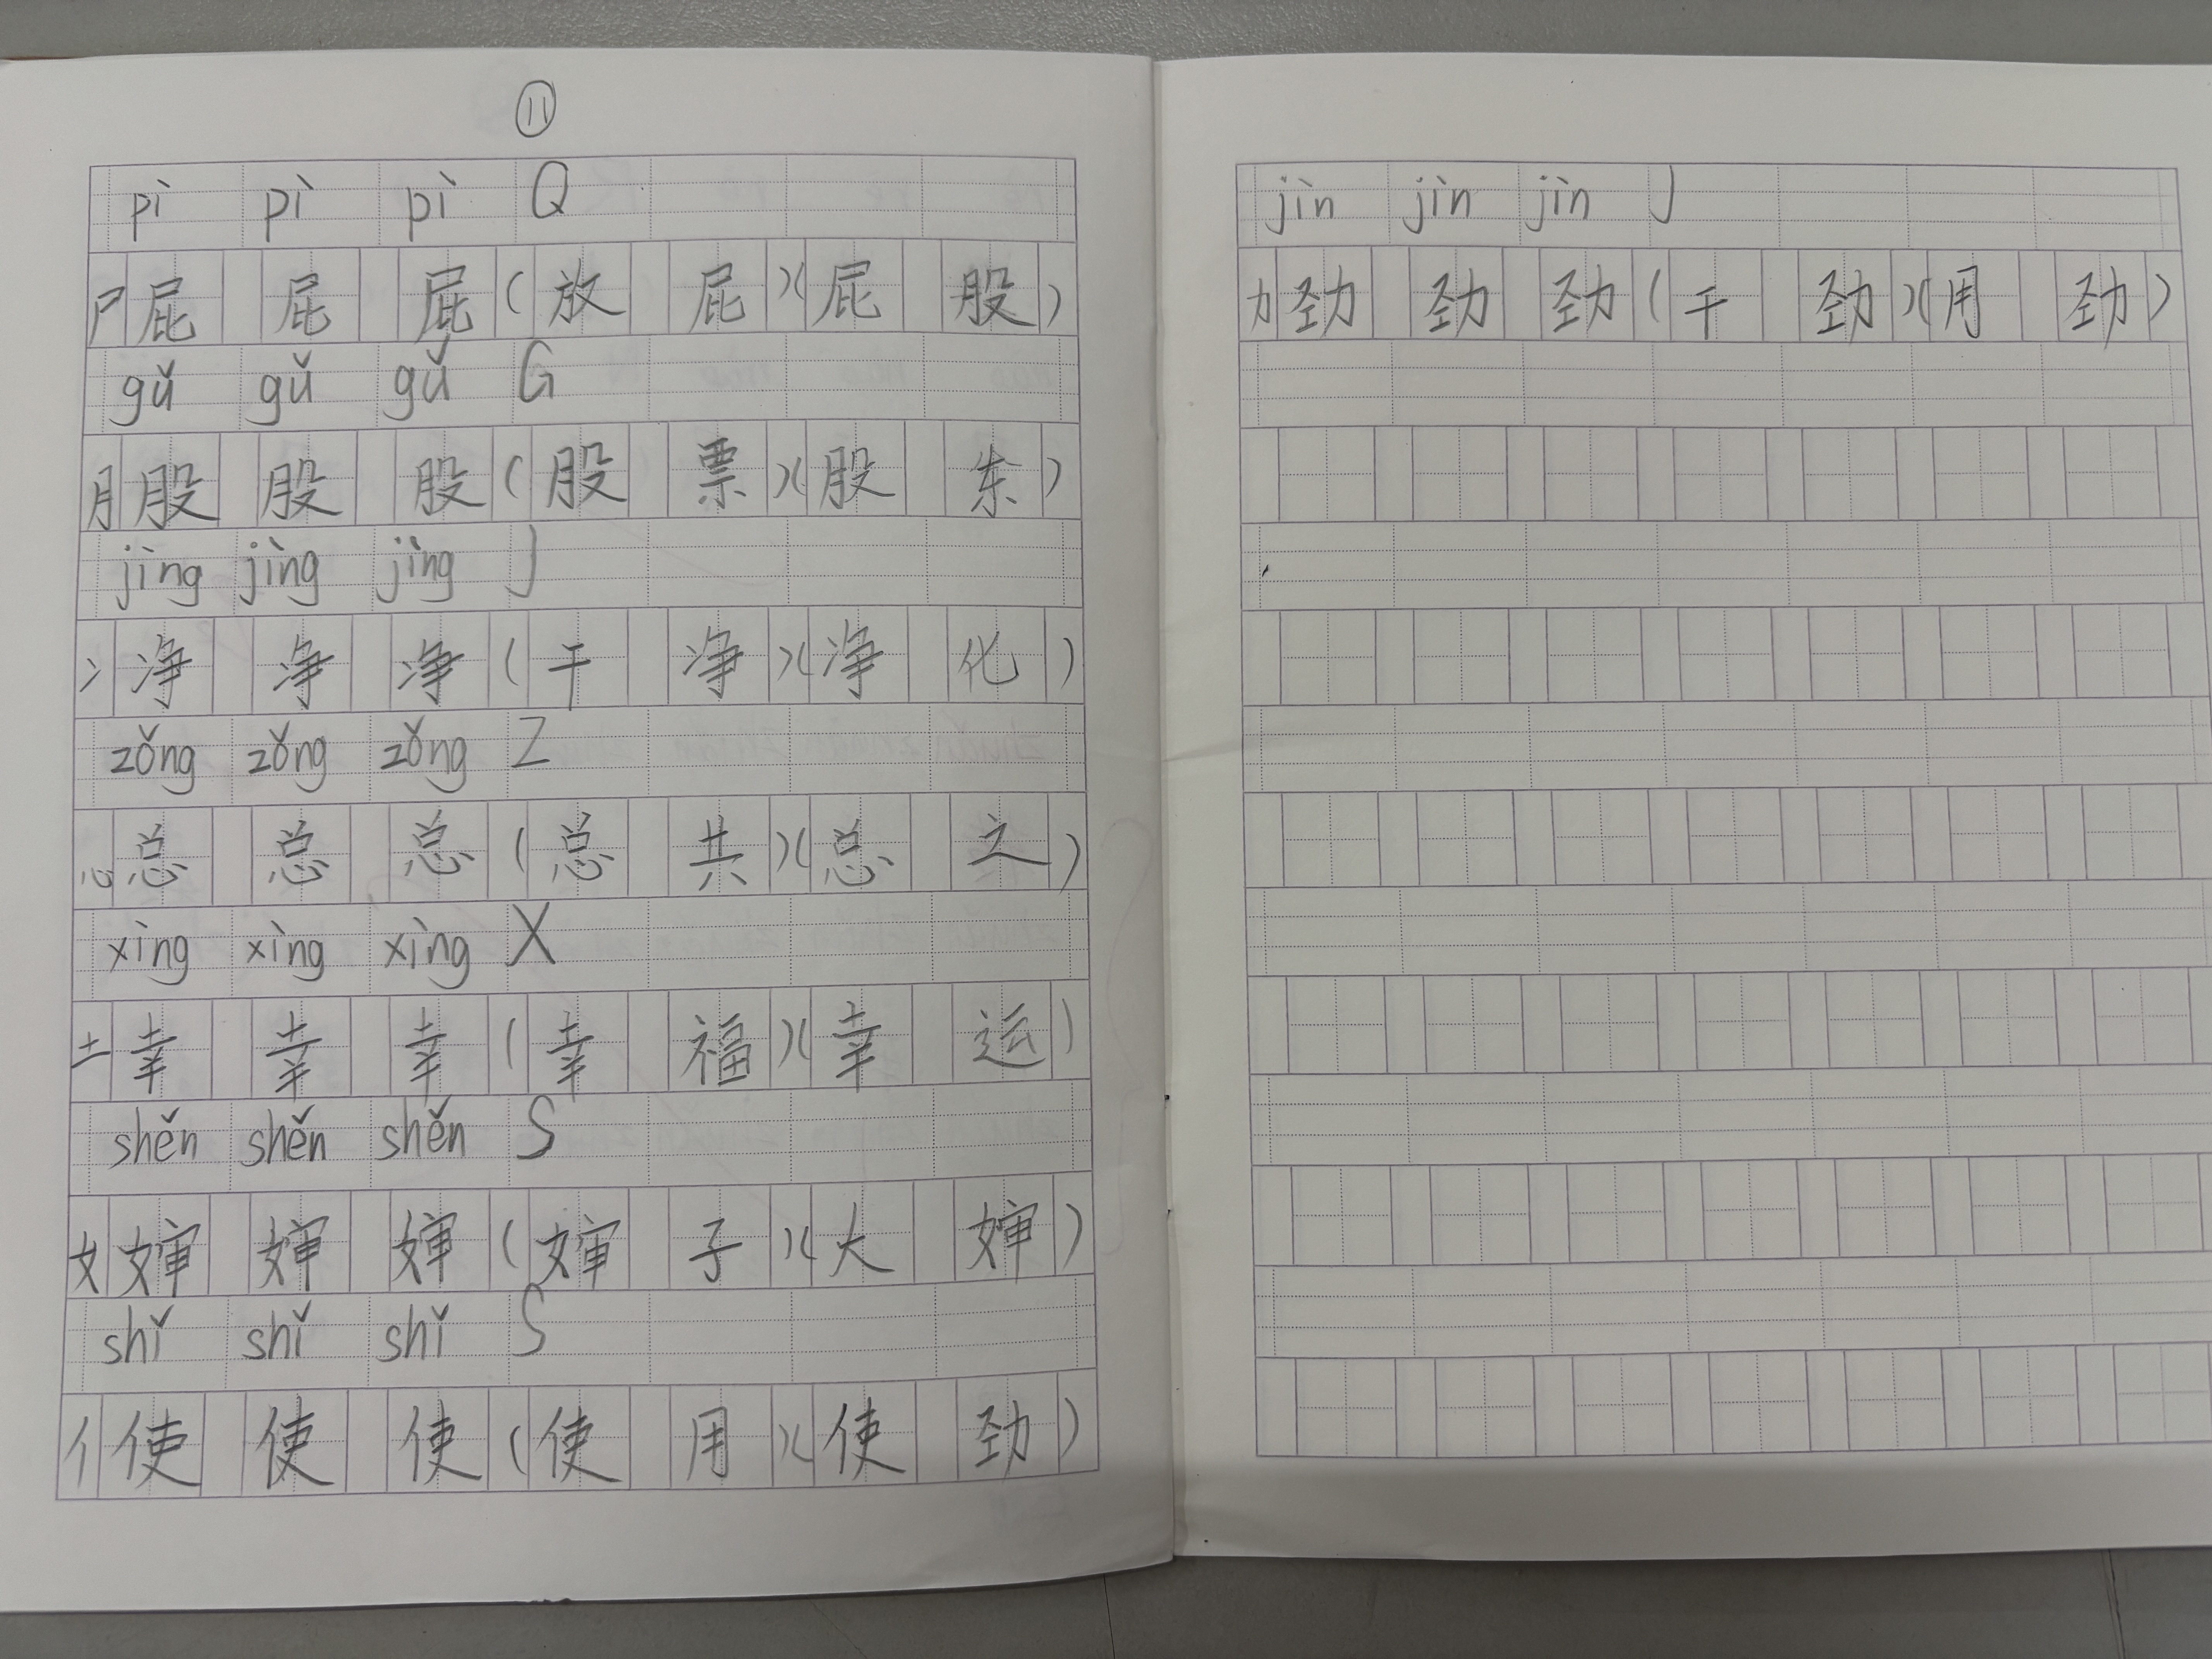 ⑪
pì pì pì Q
尸屁 屁 屁(放屁)(屁股)
gǔ gǔ gǔ G
月股 股 股(股票)(股东)
jìng jìng jìng J
冫净 净 净(干净)(净化)
zǒng zǒng zǒng Z
心总 总 总(总共)(总之)
xìng xìng xìng X
土幸 幸 幸(幸福)(幸运)
shěn shěn shěn S
女婶 婶 婶(婶子)(大婶)
shǐ shǐ shǐ S
亻使 使 使(使用)(使劲)
jìn jìn jìn J
力劲 劲 劲(干劲)(用劲)